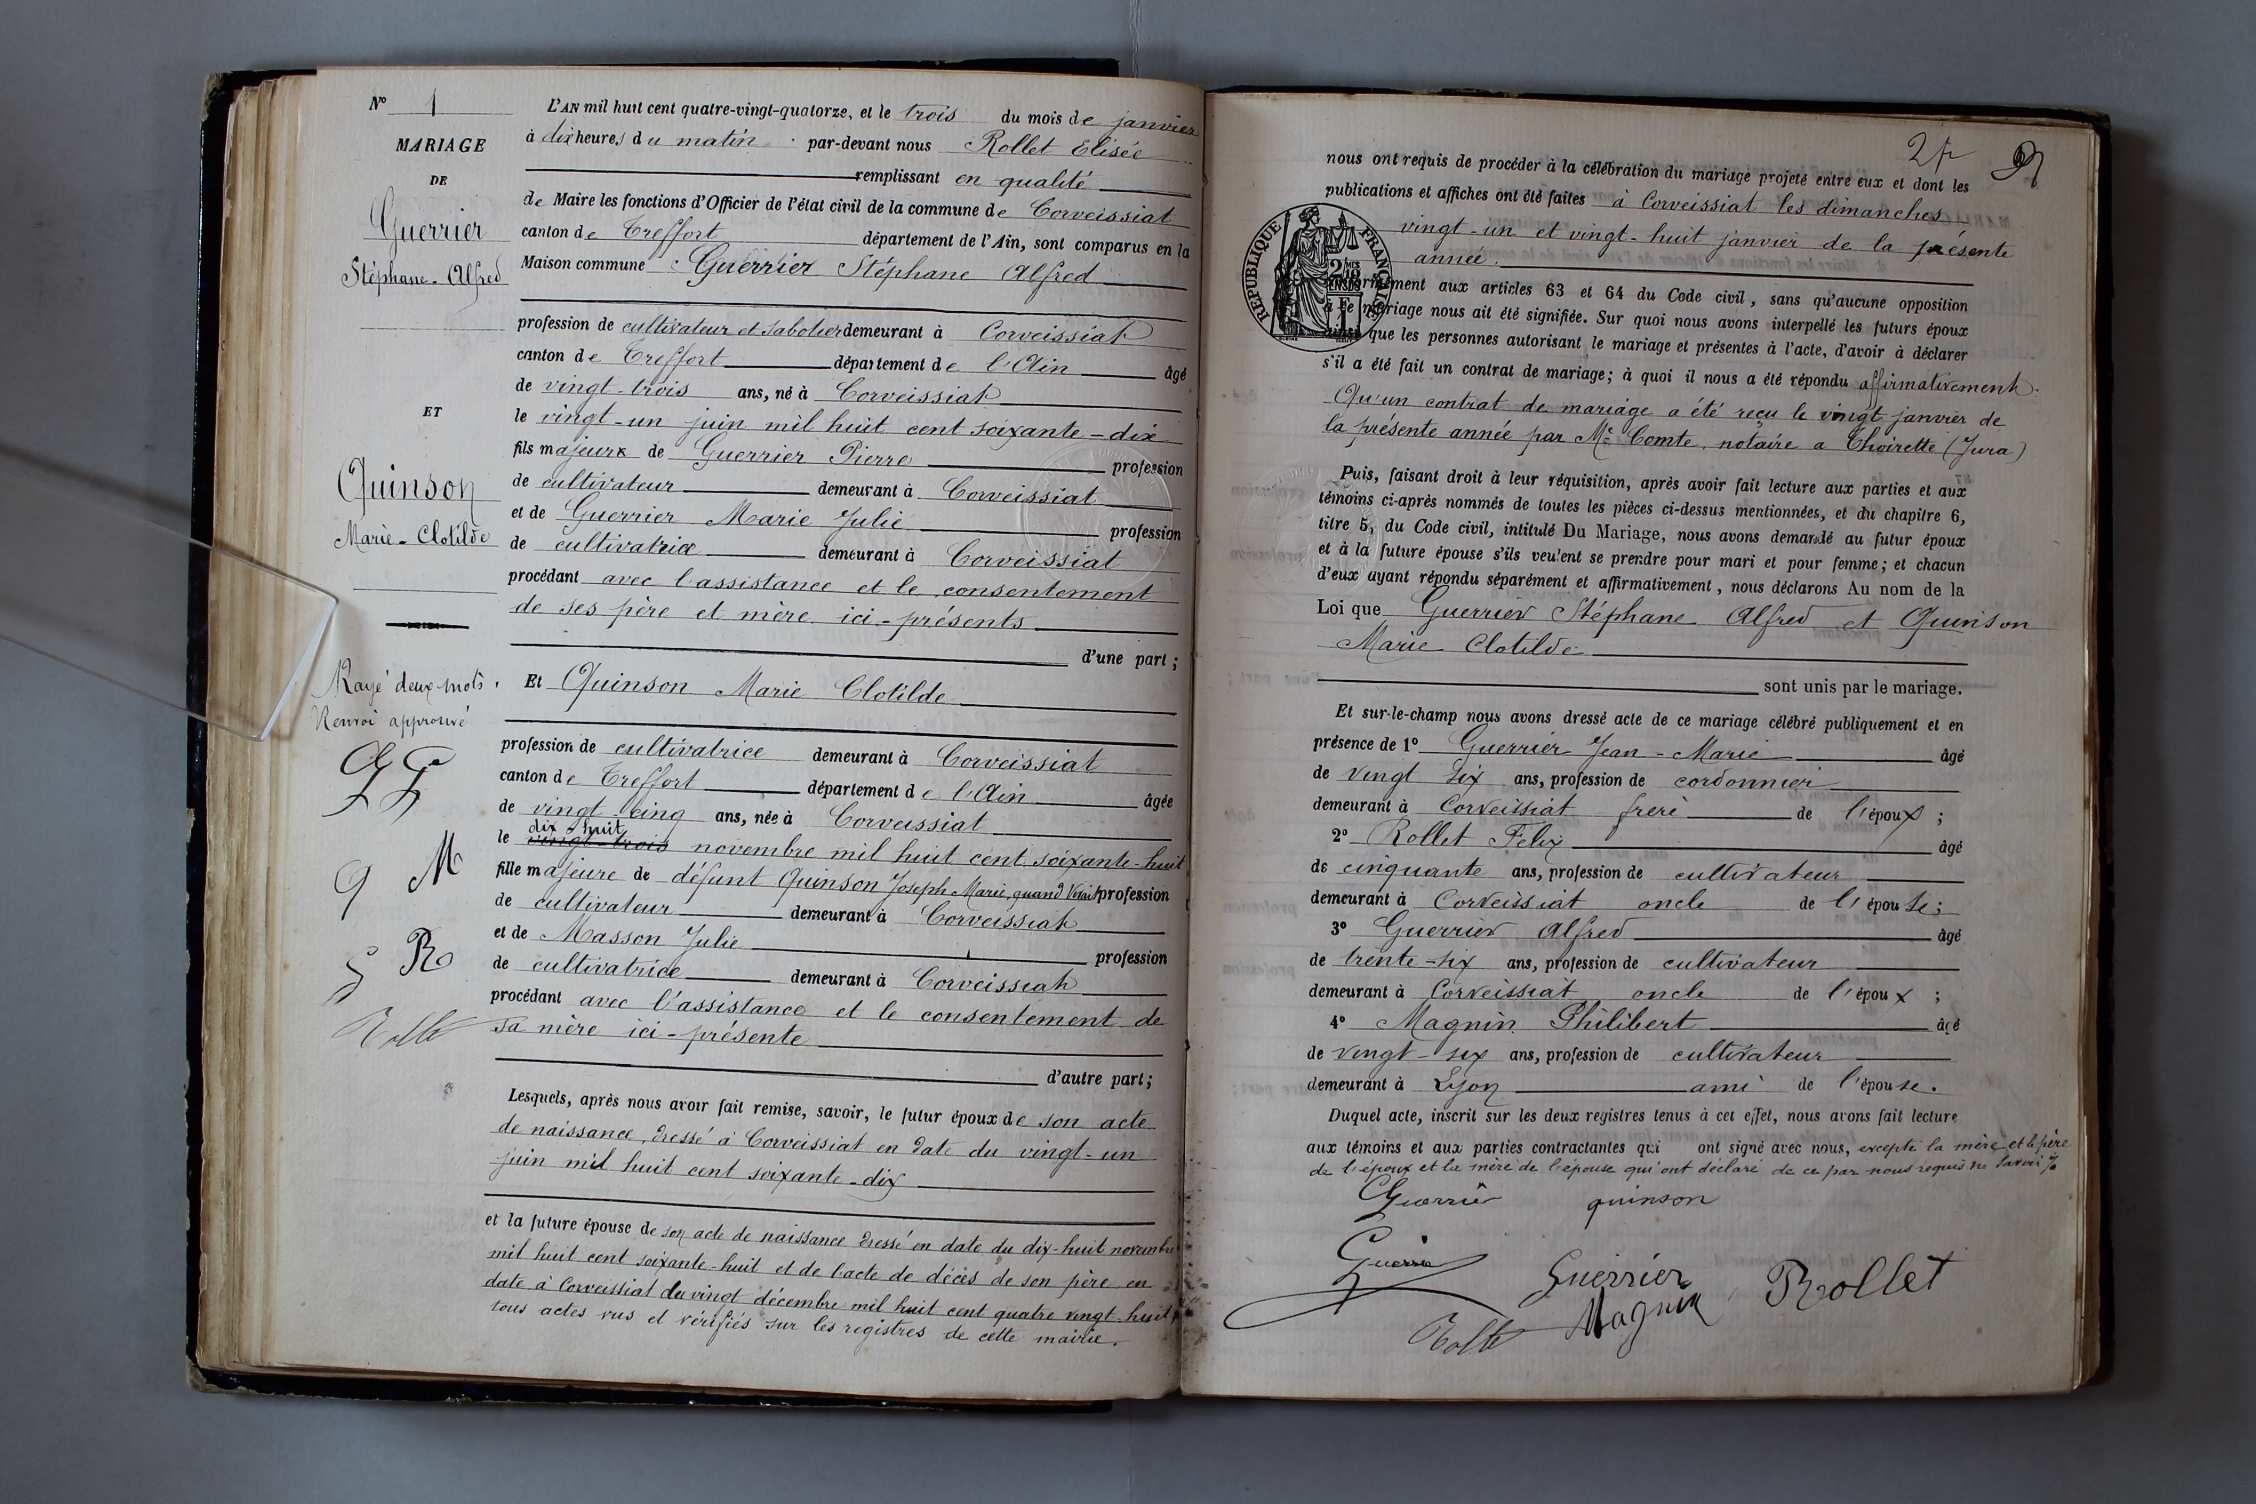 N° 1
MARIAGE
DE
Guerrier
Stéphane-Alfred
ET
Quinson
Marie-Clotilde
Rayé deux mots.
Renvoi approuvé
G G
q M
G R
L'AN mil huit cent quatre-vingt-quatorze, et le trois du mois de janvier
à dix heures du matin par-devant nous Rollet Elisée
remplissant en qualité
de Maire les fonctions d'Officier de l'état civil de la commune de Corveissiat
canton de Treffort département de l'Ain, sont comparus en la
Maison commune : Guerrier Stéphane Alfred
profession de cultivateur et sabotier demeurant à Corveissiat
canton de Treffort département de l'Ain âgé
de vingt-trois ans, né à Corveissiat
le vingt-un juin mil huit cent soixante-dix
fils majeur de Guerrier Pierre profession
de cultivateur demeurant à Corveissiat
et de Guerrier Marie Julie profession
de cultivatrice demeurant à Corveissiat
procédant avec l'assistance et le consentement
de ses père et mère ici-présents
d'une part ;
Et Quinson Marie Clotilde
profession de cultivatrice demeurant à Corveissiat
canton de Treffort département de l'Ain âgée
de vingt-cinq ans, née à Corveissiat
dix-huit
le vingt-trois novembre mil huit cent soixante-huit
fille majeure de défunt Quinson Joseph Marie, quand vivait profession
de cultivateur demeurant à Corveissiat
et de Masson Julie profession
de cultivatrice demeurant à Corveissiat
procédant avec l'assistance et le consentement de
sa mère ici-présente
d'autre part ;
Lesquels, après nous avoir fait remise, savoir, le futur époux de son acte
de naissance, dressé à Corveissiat en date du vingt-un
juin mil huit cent soixante-dix
et la future épouse de son acte de naissance dressé en date du dix-huit novembre
mil huit cent soixante-huit et de l'acte de décès de son père en
date à Corveissiat du vingt décembre mil huit cent quatre vingt-huit,
tous actes vus et vérifiés sur les registres de cette mairie.
2
nous ont requis de procéder à la célébration du mariage projeté entre eux et dont les
publications et affiches ont été faites à Corveissiat les dimanches
vingt-un et vingt-huit janvier de la présente
année.
RÉPUBLIQUE FRANÇAISE
conformément aux articles 63 et 64 du Code civil, sans qu'aucune opposition
à ce mariage nous ait été signifiée. Sur quoi nous avons interpellé les futurs époux
ainsi que les personnes autorisant le mariage et présentes à l'acte, d'avoir à déclarer
s'il a été fait un contrat de mariage ; à quoi il nous a été répondu affirmativement.
Qu'un contrat de mariage a été reçu le vingt janvier de
la présente année par Me Comte, notaire a Thoirette (Jura)
Puis, faisant droit à leur réquisition, après avoir fait lecture aux parties et aux
témoins ci-après nommés de toutes les pièces ci-dessus mentionnées, et du chapitre 6,
titre 5, du Code civil, intitulé Du Mariage, nous avons demandé au futur époux
et à la future épouse s'ils veulent se prendre pour mari et pour femme ; et chacun
d'eux ayant répondu séparément et affirmativement, nous déclarons Au nom de la
Loi que Guerrier Stéphane Alfred et Quinson
Marie Clotilde
sont unis par le mariage.
Et sur-le-champ nous avons dressé acte de ce mariage célébré publiquement et en
présence de 1° Guerrier Jean-Marie âgé
de vingt six ans, profession de cordonnier
demeurant à Corveissiat frère de l'époux ;
2° Rollet Felix âgé
de cinquante ans, profession de cultivateur
demeurant à Corveissiat oncle de l'épouse ;
3° Guerrier Alfred âgé
de trente-six ans, profession de cultivateur
demeurant à Corveissiat oncle de l'époux ;
4° Magnin Philibert âgé
de vingt-six ans, profession de cultivateur
demeurant à Lyon ami de l'épouse.
Duquel acte, inscrit sur les deux registres tenus à cet effet, nous avons fait lecture
aux témoins et aux parties contractantes qui ont signé avec nous, excepté la mère et le père
de l'époux et la mère de l'épouse qui ont déclaré de ce par nous requis ne savoir
Guerrier quinson
Guerrier Guerrier Rollet
Magnin